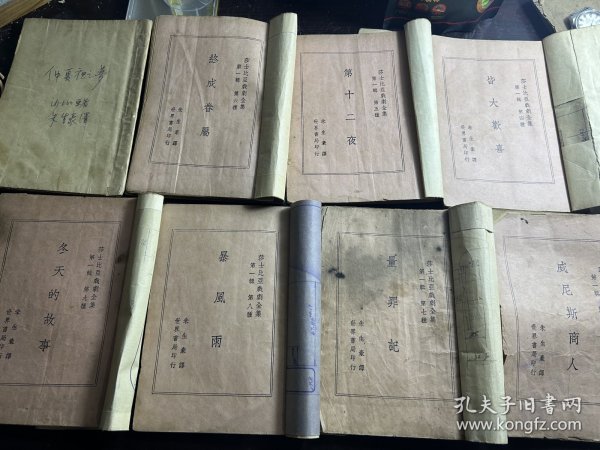 仲夏夜之夢
莎士比亞
朱生豪譯
莎士比亞戲劇全集
第一輯 第六種
終成眷屬
朱生豪譯
世界書局印行
莎士比亞戲劇全集
第一輯 第五種
第十二夜
朱生豪譯
世界書局印行
莎士比亞戲劇全集
第一輯 第四種
皆大歡喜
朱生豪譯
世界書局印行
莎士比亞戲劇全集
第一輯 第九種
冬天的故事
朱生豪譯
世界書局印行
莎士比亞戲劇全集
第一輯 第八種
暴風雨
朱生豪譯
世界書局印行
莎士比亞戲劇全集
第一輯 第七種
量罪記
朱生豪譯
世界書局印行
威尼斯商人
朱生豪譯
世界書局印行
孔夫子旧书网
www.kongfz.com